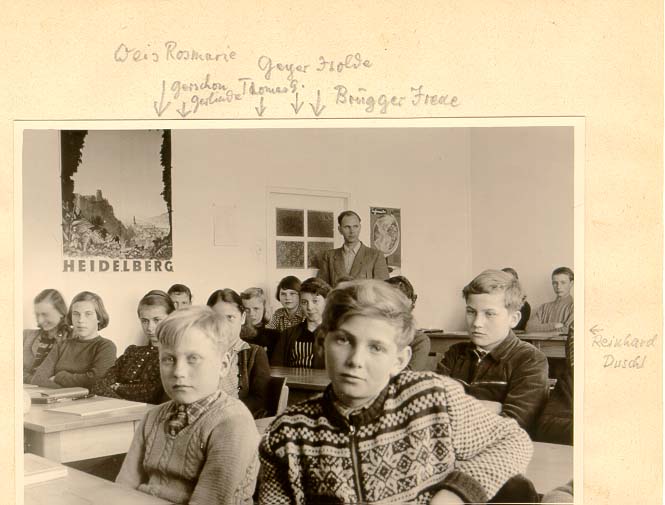 Weis Rosmarie
Geyer Isolde
Gerschon Thomas G.
Gerlinde
Brügger Frede
HEIDELBERG
Reinhard
Duschl